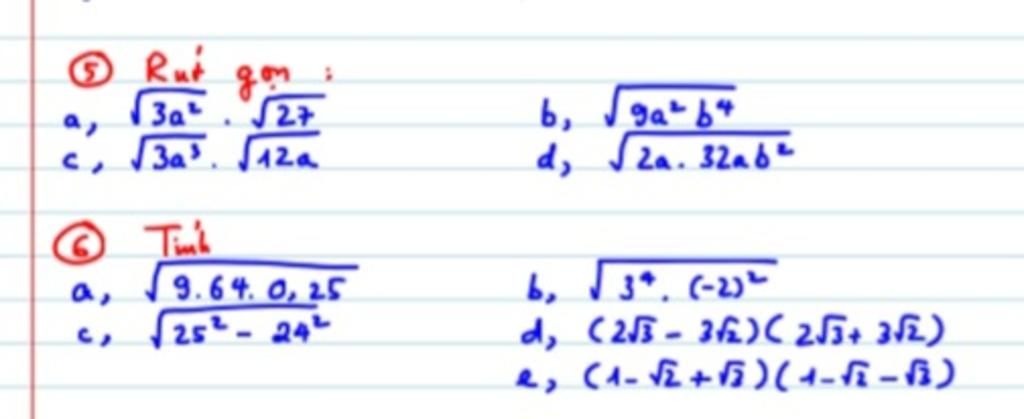 ⑤ Rút gọn :
a, √3a² . √27 b, √9a²b⁴
c, √3a³ . √12a d, √2a . 32ab²
⑥ Tính
a, √9.64.0,25 b, √3⁴ . (-2)²
c, √25² - 24² d, (2√3 - 3√2)(2√3 + 3√2)
e, (1 - √2 + √3)(1 - √2 - √3)